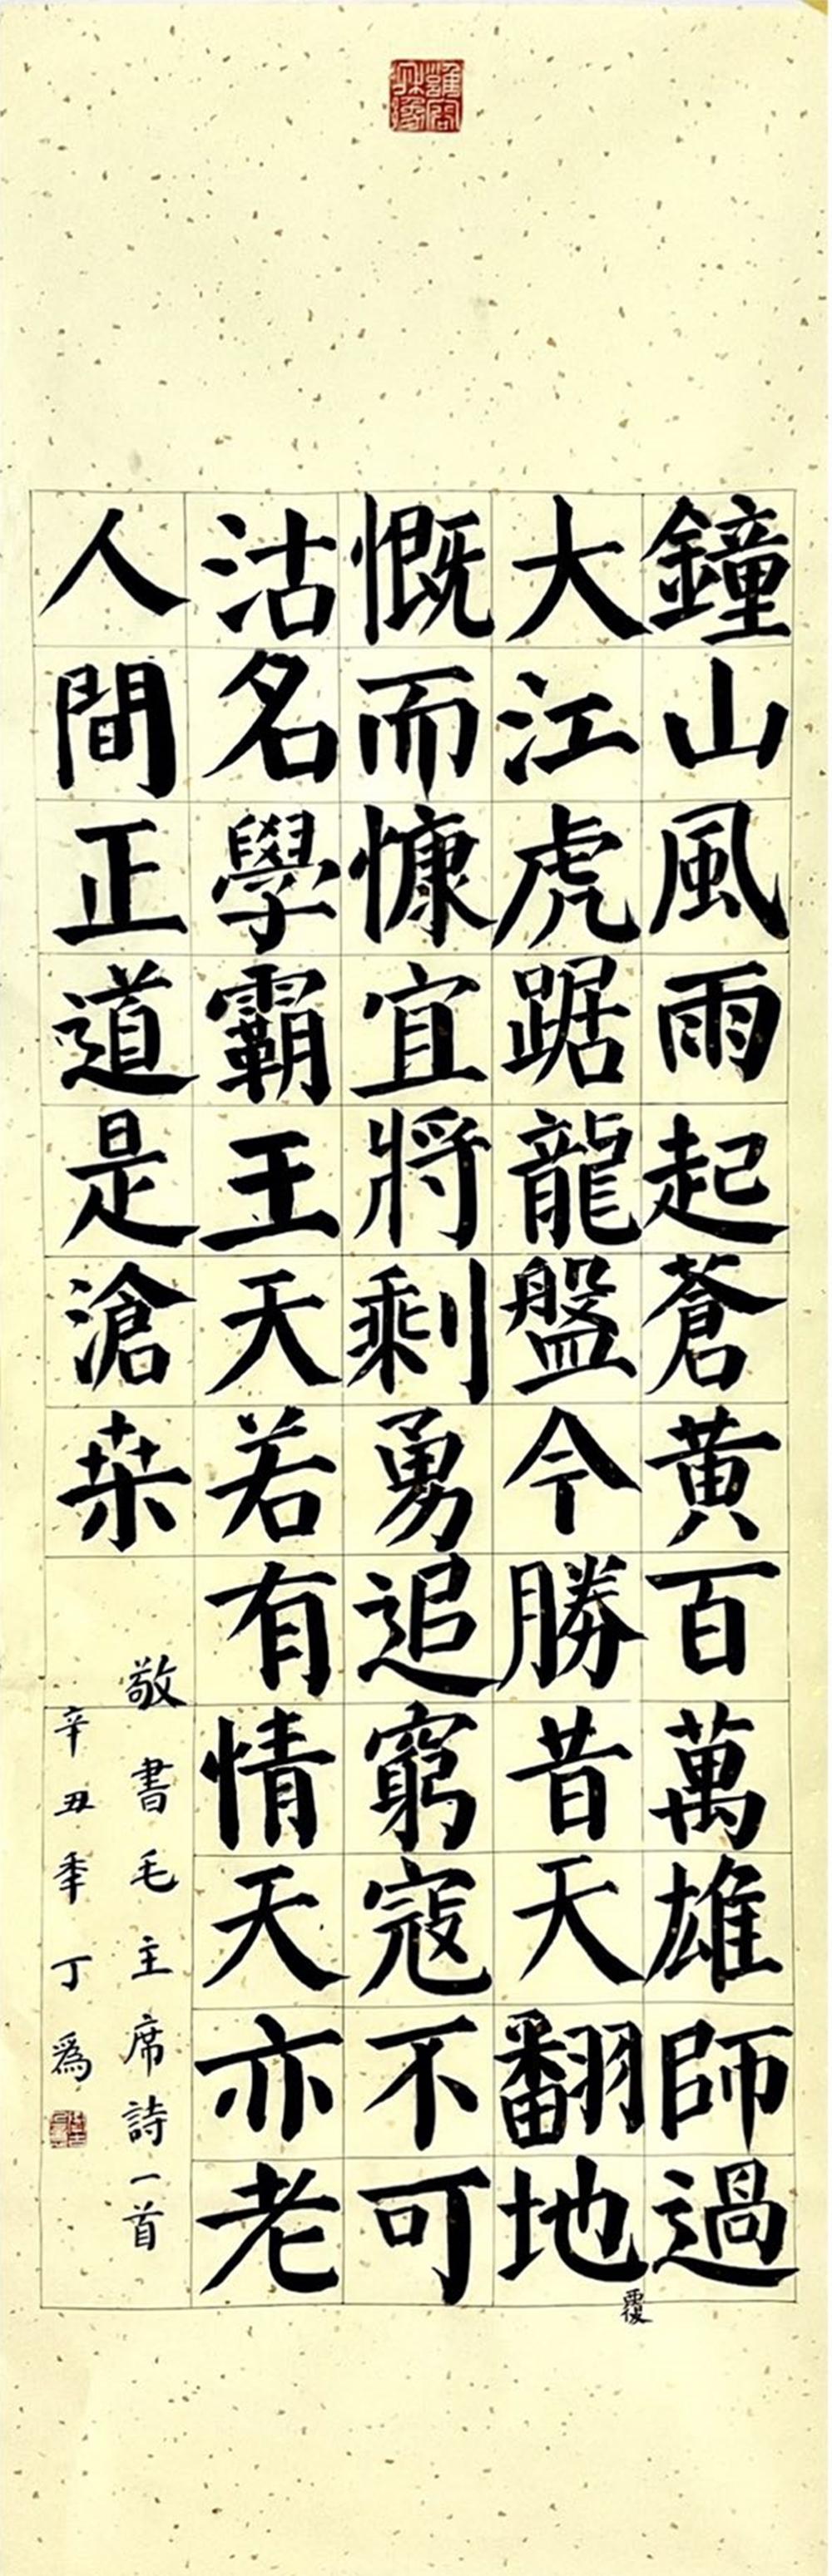 鐘山風雨起蒼黄百萬雄師過
大江虎踞龍盤今勝昔天翻地
覆
慨而慷宜將剩勇追窮寇不可
沽名學霸王天若有情天亦老
人間正道是滄桒
敬書毛主席詩一首
辛丑秊丁爲